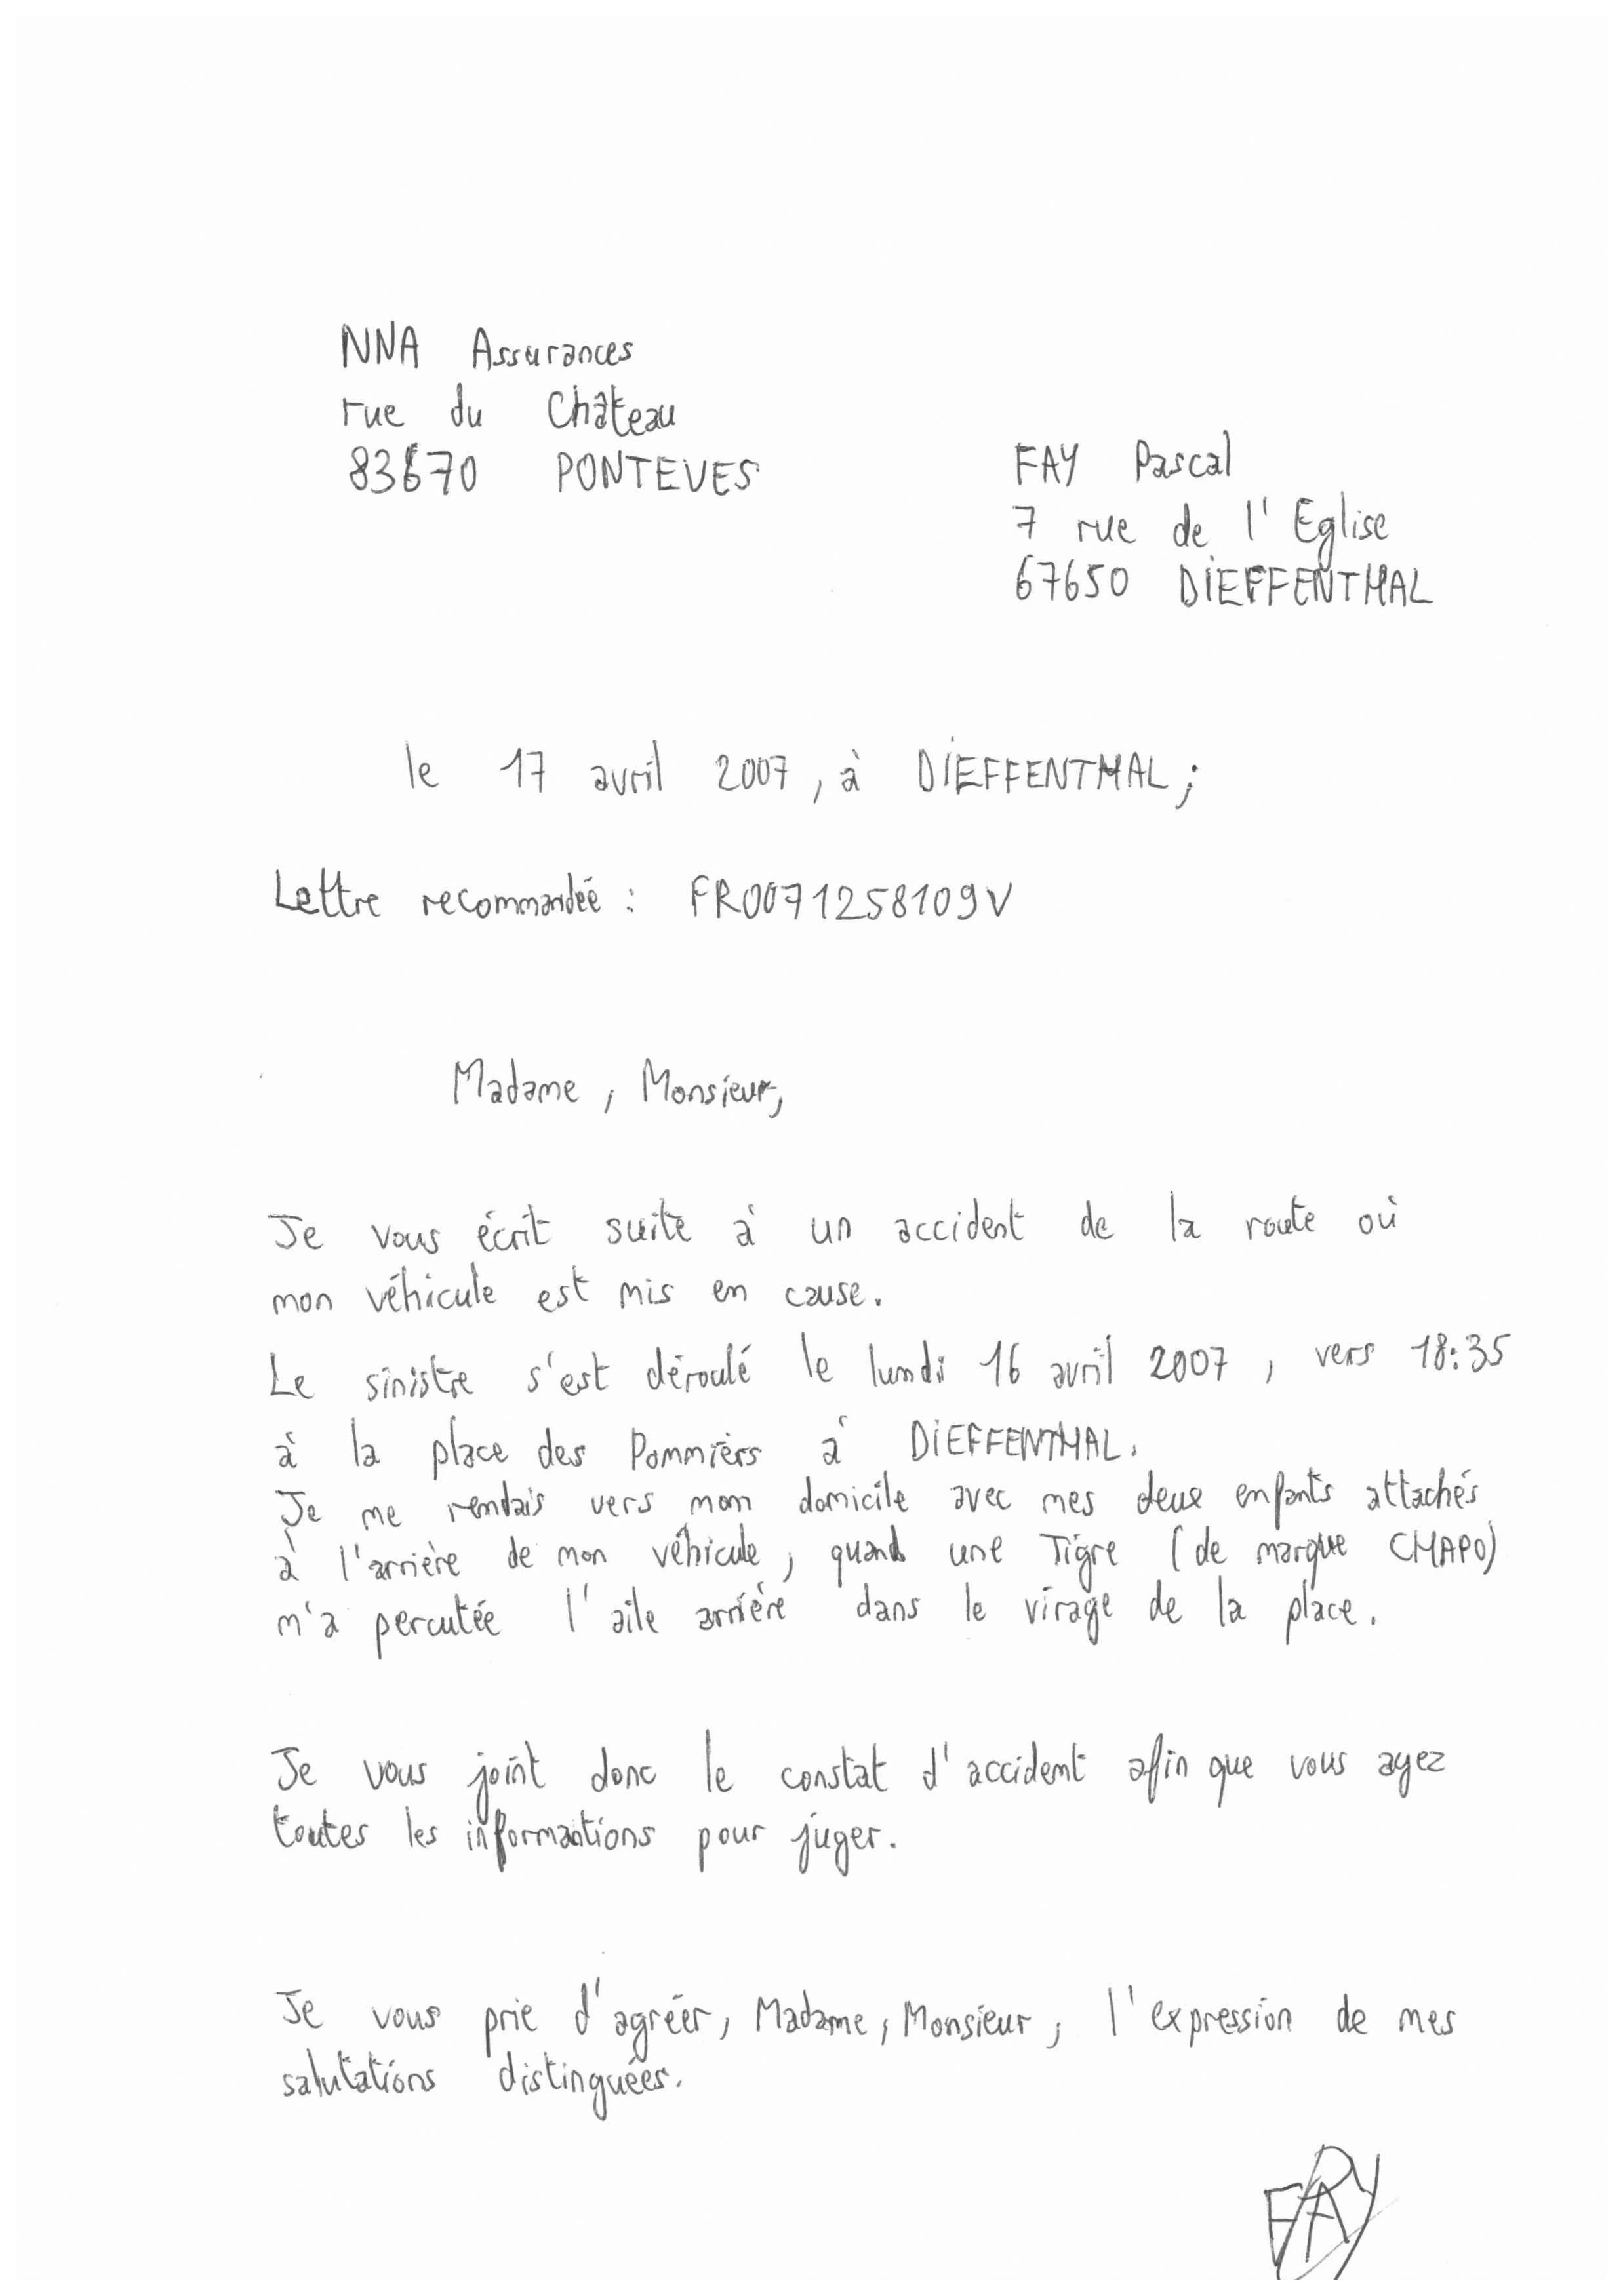 NNA Assurances
rue du Château
83670 PONTEVES
FAY Pascal
7 rue de l'Eglise
67650 DIEFFENTHAL
le 17 avril 2007, à DIEFFENTHAL;
Lettre recommandée : FR0071258109V
Madame, Monsieur,
Je vous écrit suite à un accident de la route où
mon véhicule est mis en cause.
Le sinistre s'est déroulé le lundi 16 avril 2007, vers 18:35
à la place des Pommiers à DIEFFENTHAL.
Je me rendais vers mon domicile avec mes deux enfants attachés
à l'arrière de mon véhicule, quand une Tigre (de marque CHAPO)
m'a percutée l'aile arrière dans le virage de la place.
Je vous joint donc le constat d'accident afin que vous ayez
toutes les informations pour juger.
Je vous prie d'agréer, Madame, Monsieur, l'expression de mes
salutations distinguées.
FAY